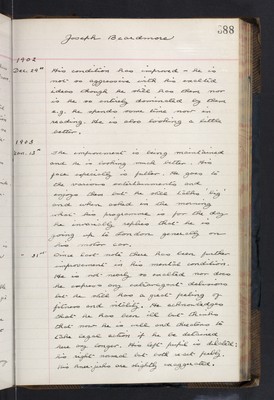 388
Joseph Beardmore
1902
Dec 29th His condition has improved - he is
not so aggressive with his exalted
ideas though he still has them nor
is he so entirely dominated by them
e.g. he spends some time now in
reading. He is also looking a little
better.
1903
Jan. 15th The improvement is being maintained
and he is looking much better. His
face especially is fuller. He goes to
the various entertainments and
enjoys them but he still talks 'big'
and when asked in the morning
what his programme is for the day
he invariably replies that he is
going up to London generally on
his motor car.
- 31st Since last note there has been further
improvement in his mental condition.
He is not nearly so exalted nor does
he express any extravagant delusions
but he still has a great feeling of
fitness and ability. He acknowledges
that he has been ill but thinks
that now he is well and threatens to
take legal action if he be detained
here any longer. His left pupil is dilated;
his right normal but both react feebly.
His knee-jerks are slightly exaggerated.